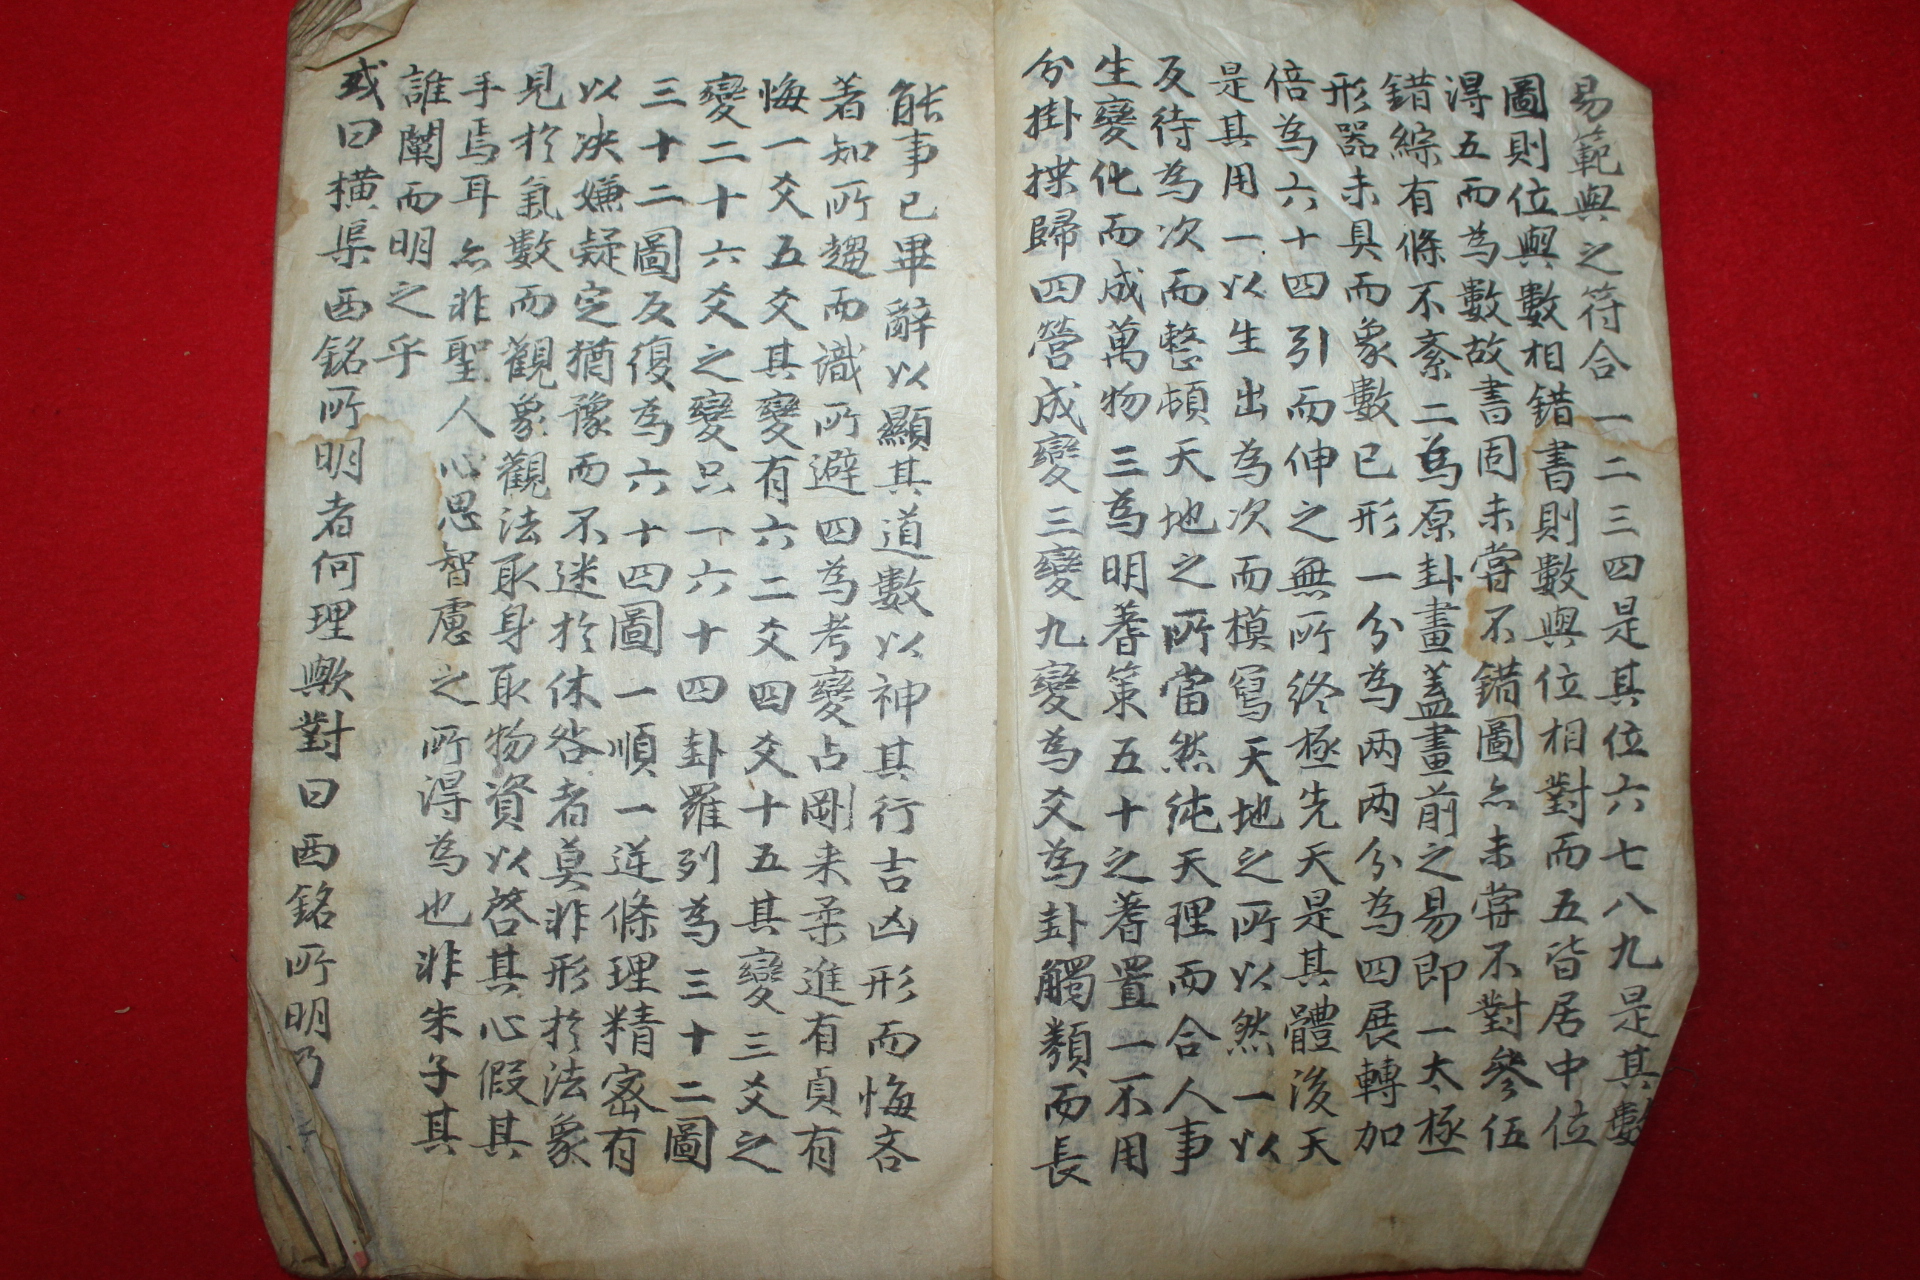 易範與之符合一二三四是其位六七八九是其數
圖則位與數相錯書則數與位相對而五皆居中位
淂五而為數故書固未甞不錯圖亦未甞不對參伍
錯綜有條不紊二為原卦畫盖畫前之易即一太極
形器未具而象數已形一分為两两分為四展轉加
倍為六十四引而伸之無所終極先天是其體後天
是其用一以生出為次而模寫天地之所以然一以
反待為次而整頓天地之所當然純天理而合人事
生變化而成萬物三為明蓍策五十之蓍置一不用
分掛揲歸四營成變三變九變為爻為卦觸類而長
能事已畢辭以顯其道數以神其行吉凶形而悔吝
著知所趨而識所避四為考變占剛来柔進有貞有
悔一爻五爻其變有六二爻四爻十五其變三爻之
變二十六爻之變只一六十四卦羅列為三十二圖
三十二圖反復為六十四圖一順一逆條理精密有
以决嫌疑定猶豫而不迷於休咎者莫非形於法象
見於氣數而觀象觀法取身取物資以啓其心假其
手焉耳亦非聖人心思智慮之所淂為也非朱子其
誰闡而明之乎
或曰横渠西銘所明者何理歟對曰西銘所明乃